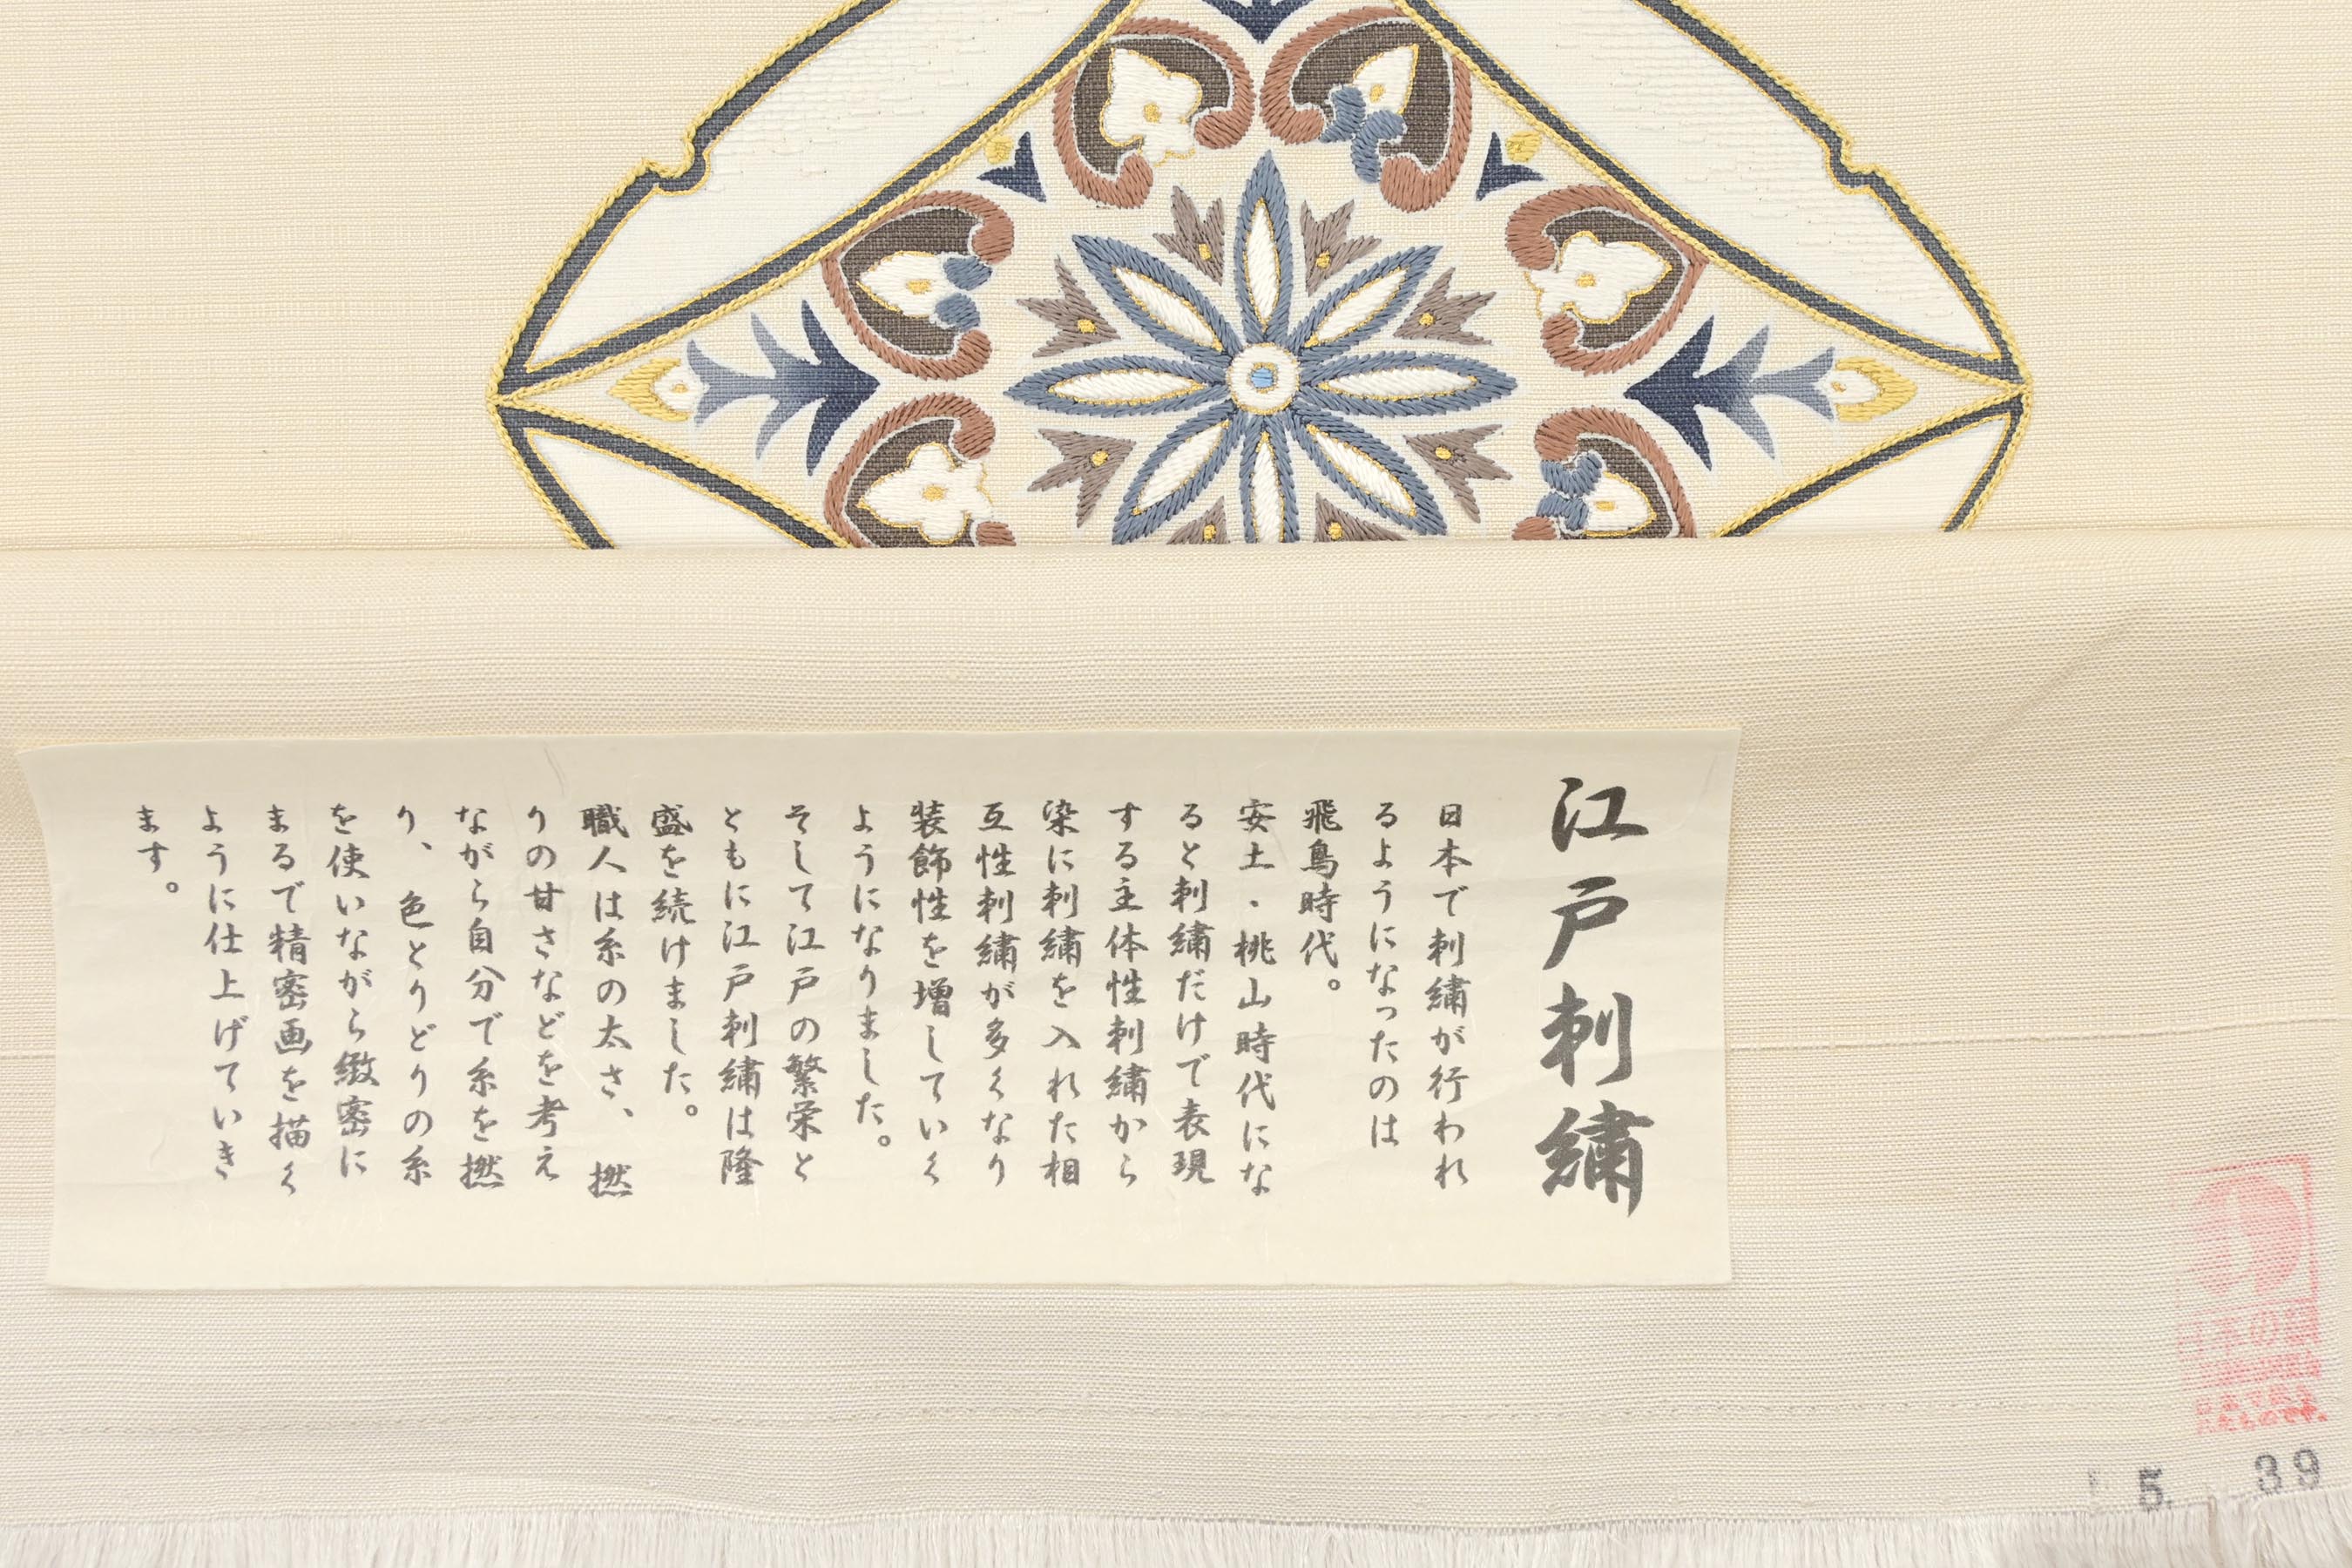 江戸刺繍
日本で刺繍が行われ
るようになったのは
飛鳥時代。
安土・桃山時代にな
ると刺繍だけで表現
する主体性刺繍から
染に刺繍を入れた相
互性刺繍が多くなり
装飾性を増していく
ようになりました。
そして江戸の繁栄と
ともに江戸刺繍は隆
盛を続けました。
職人は糸の太さ、撚
りの甘さなどを考え
ながら自分で糸を撚
り、色とりどりの糸
を使いながら緻密に
まるで精密画を描く
ように仕上げていき
ます。
日本の絹
5. 39